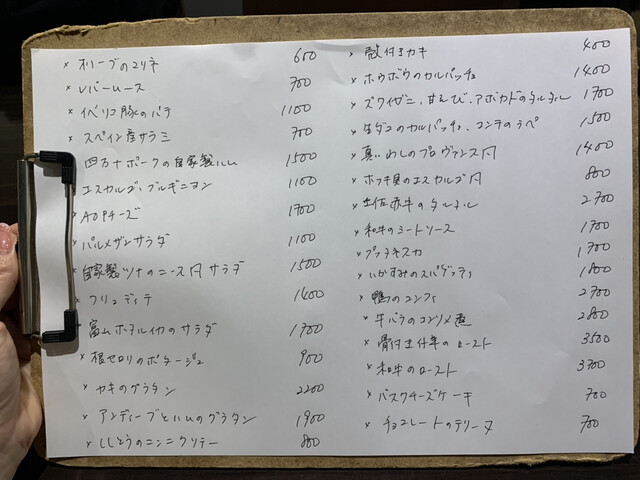 × オリーブのマリネ 600
× レバームース 700
× イベリコ豚のパテ 1100
× スペイン産サラミ 700
四万十ポークの自家製ハム 1500
× エスカルゴ・ブルギニヨン 1100
× AOPチーズ 1700
× パルメザンサラダ 1100
× 自家製ツナのニース風サラダ 1500
× クリュディテ 1400
× 富山ホタルイカのサラダ 1700
× 根セロリのポタージュ 900
× カキのグラタン 2200
× アンディーブとハムのグラタン 1900
× ししとうのニンニクソテー 800
× 殻付きカキ 400
× ホウボウのカルパッチョ 1400
× ズワイガニ、甘えび、アボカドのタルタル 1700
× 生ダコのカルパッチョ、コンテのラペ 1500
× 真いわしのプロヴァンス風 1400
× ホッキ貝のエスカルゴ風 800
× 土佐赤牛のタルタル 2700
× 和牛のミートソース 1700
× プッタネスカ 1700
× いかすみのスパゲッティ 1800
× 鴨のコンフィ 2700
× 牛バラのコンソメ煮 2800
× 骨付き仔羊のロースト 3500
× 和牛のロースト 3700
× バスクチーズケーキ 700
× チョコレートのテリーヌ 700